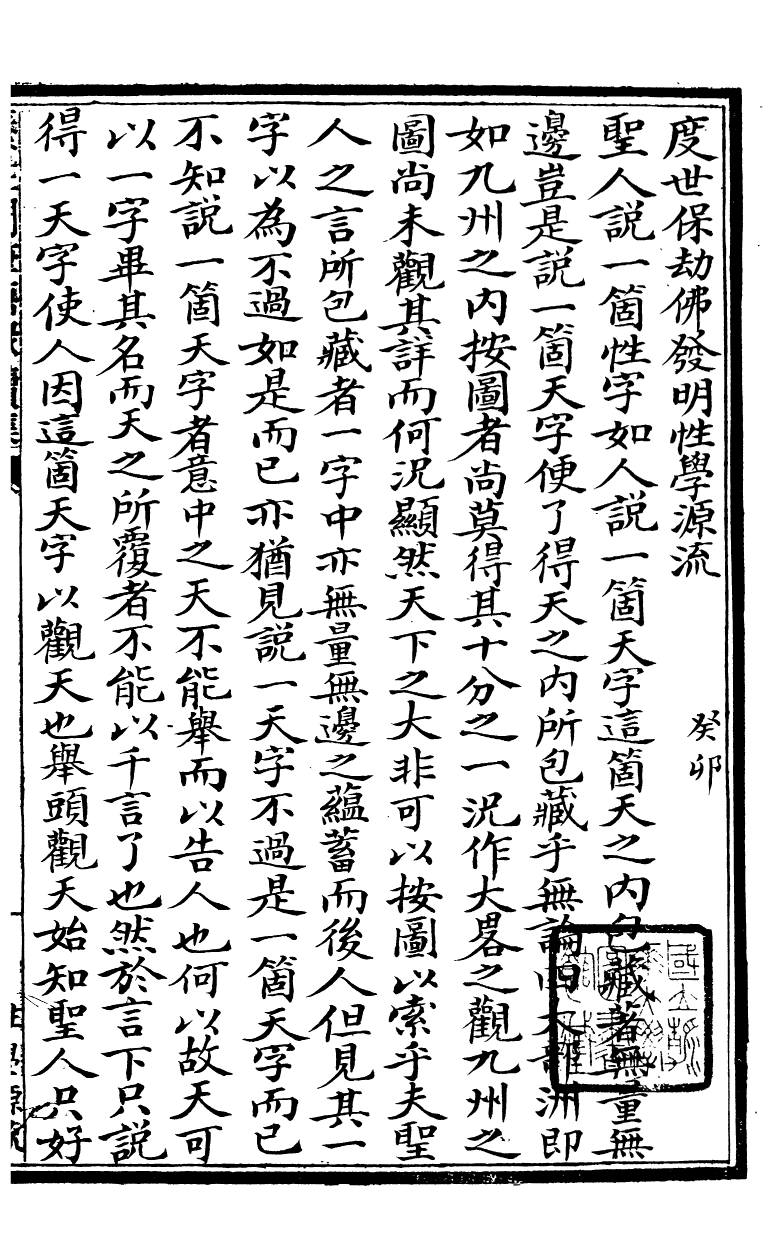 度世保劫佛發明性學源流　癸卯
聖人說一箇性字如人說一箇天字這箇天之內包藏著無量無
邊豈是說一箇天字便了得天之內所包藏乎無論四大部洲即
如九州之內按圖者尚莫得其十分之一況作大畧之觀九州之
圖尚未觀其詳而何況顯然天下之大非可以按圖以索乎夫聖
人之言所包藏者一字中亦無量無邊之蘊蓄而後人但見其一
字以為不過如是而已亦猶見說一天字不過是一箇天字而已
不知說一箇天字者意中之天不能舉而以告人也何以故天可
以一字畢其名而天之所覆者不能以千言了也然於言下只說
得一天字使人因這箇天字以觀天也舉頭觀天始知聖人只好